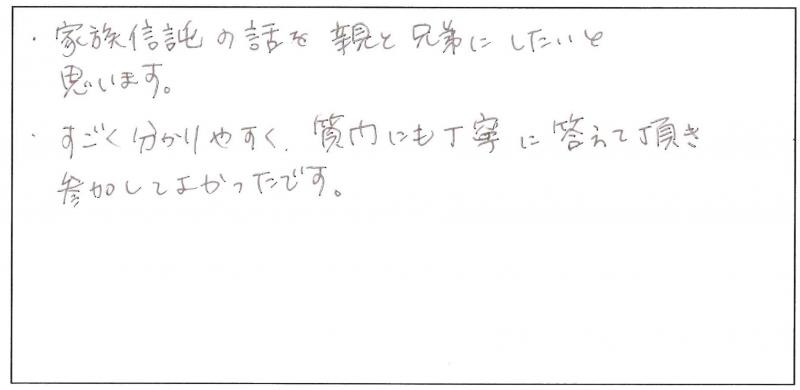 ・家族信託の話を親と兄弟にしたいと
思います。
・すごく分かりやすく、質内にも丁寧に答えて頂き
参加してよかったです。